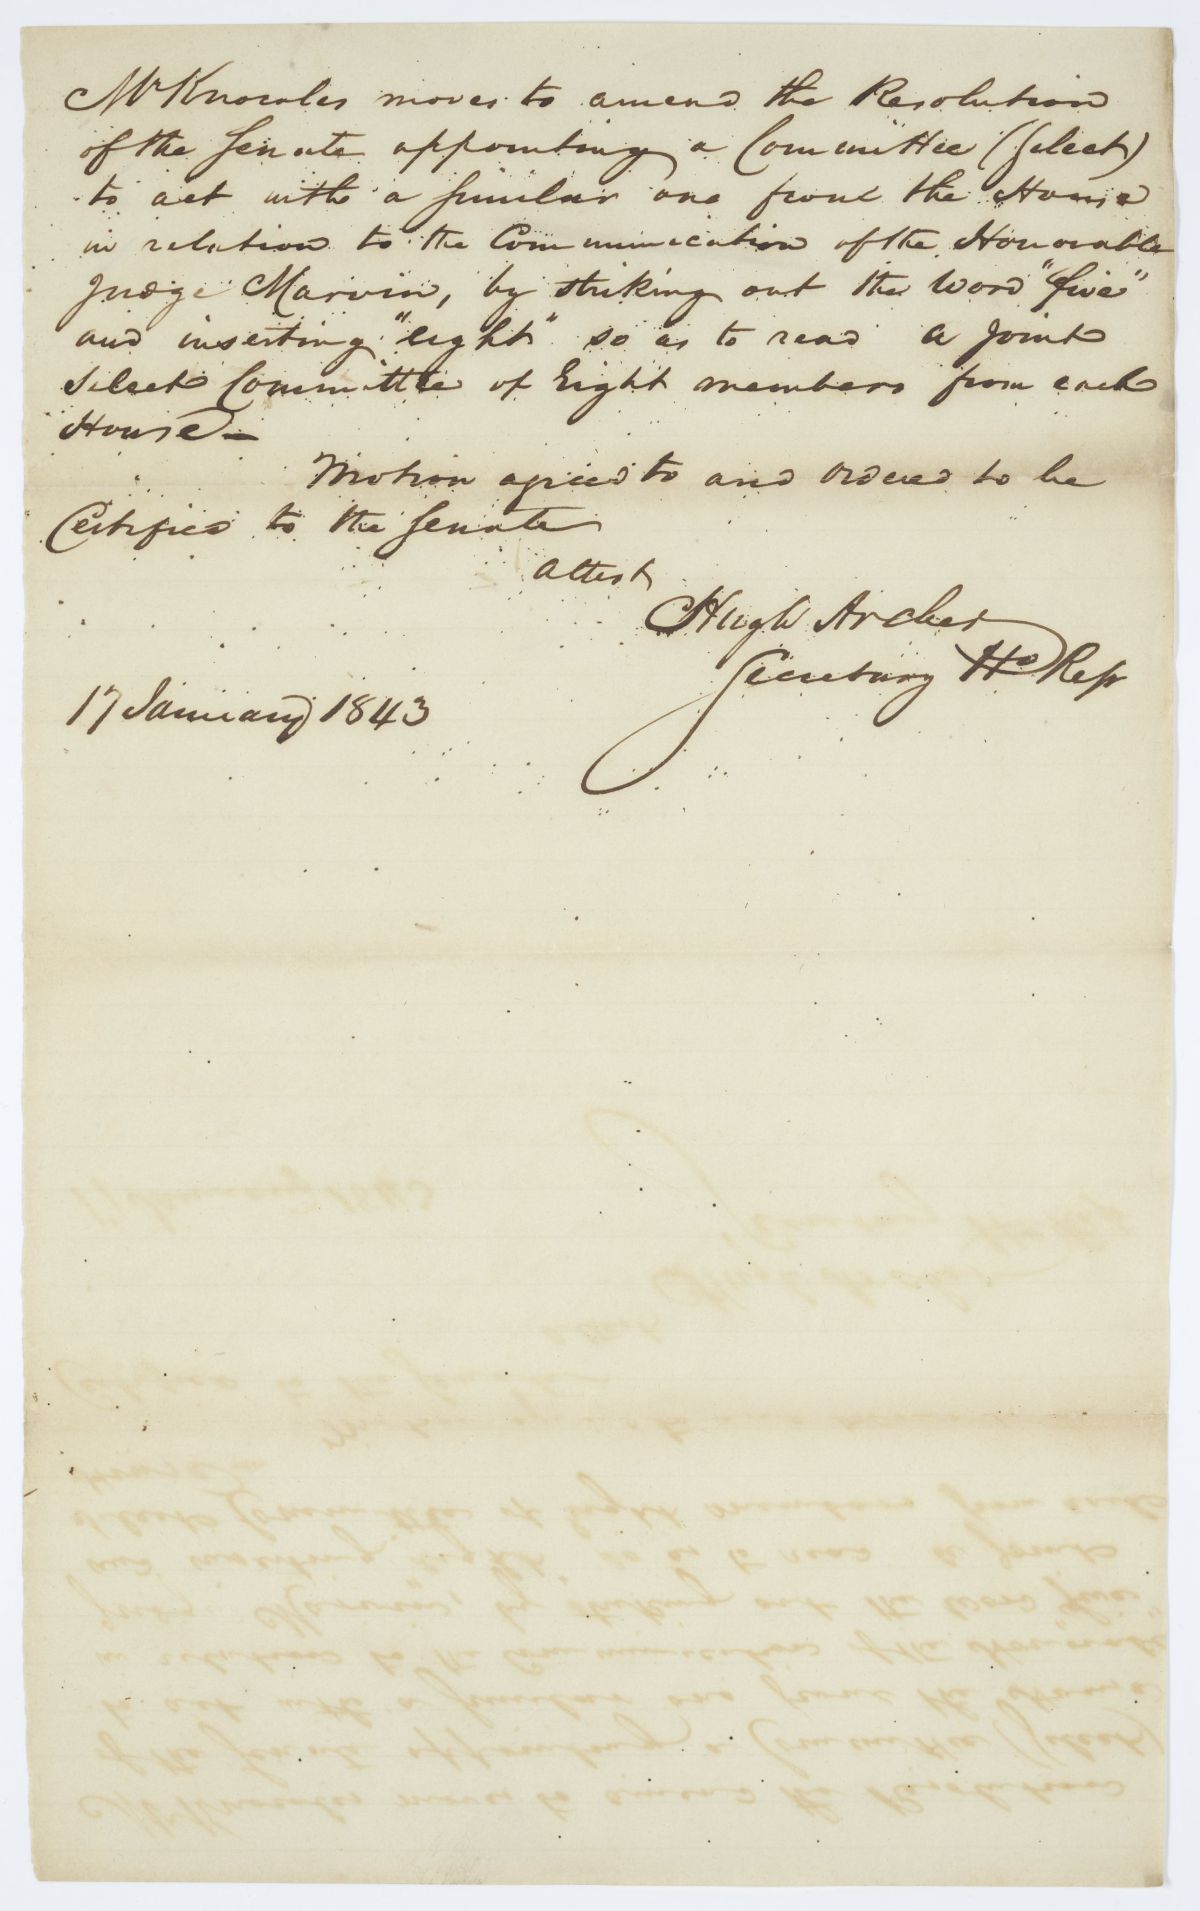 Mr Knowles moves to amend the Resolution
of the Senate appointing a Committee (Select)
to act with a similar one from the House
in relation to the Communication of the Honorable
Judge Marvin, by striking out the word "five"
and inserting "eight" so as to read a Joint
Select Committee of Eight members from each
House —
Motion agreed to and ordered to be
Certified to the Senate
Attest
Hugh Archer
Secretary Ho Rep
17 January 1843